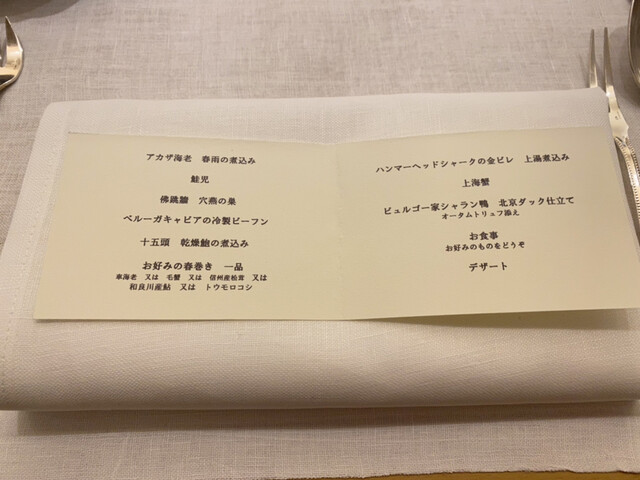 アカザ海老　春雨の煮込み
鮭児
佛跳牆　穴燕の巣
ベルーガキャビアの冷製ビーフン
十五頭　乾燥鮑の煮込み
お好みの春巻き　一品
車海老　又は　毛蟹　又は　信州産松茸　又は
和良川産鮎　又は　トウモロコシ
ハンマーヘッドシャークの金ビレ　上湯煮込み
上海蟹
ビュルゴー家シャラン鴨　北京ダック仕立て
オータムトリュフ添え
お食事
お好みのものをどうぞ
デザート